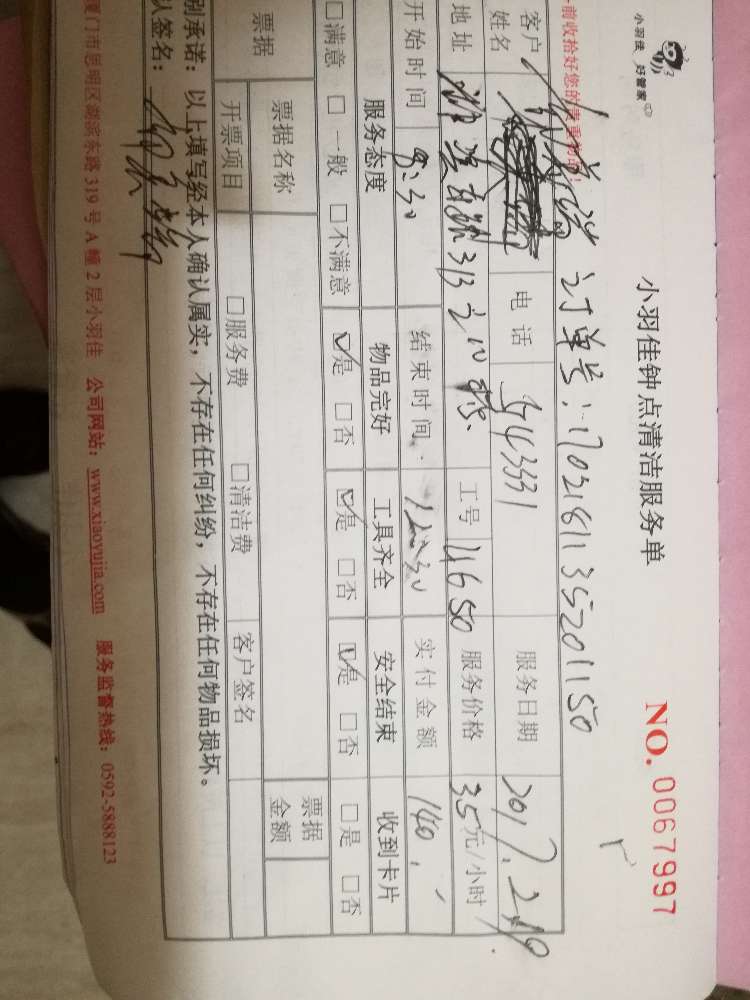 小羽佳 好管家
小羽佳钟点清洁服务单
NO. 0067997
前收拾好您的贵重物品!
订单号:1702181135201150
客户姓名 电话 服务日期 2017.2.19
地址 313之 工号 4650 服务价格 35元/小时
开始时间 8:30 结束时间 12:30 实付金额 140
服务态度 物品完好 工具齐全 安全结束 收到卡片
□满意 □一般 □不满意 ☑是 □否 ☑是 □否 ☑是 □否 □是 □否
票据 票据名称 票据金额
开票项目 □服务费 □清洁费 客户签名
别承诺:以上填写经本人确认属实,不存在任何纠纷,不存在任何物品损坏。
认签名:
厦门市思明区湖滨东路 319 号 A 幢 2 层小羽佳 公司网站:www.xiaoyujia.com 服务监督热线:0592-5888123